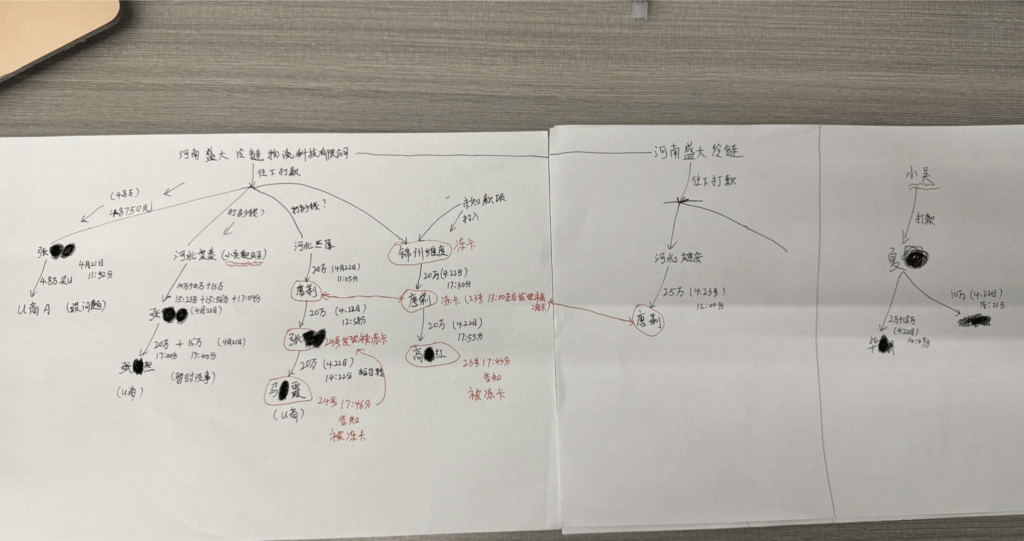 河南盛大冷链物流科技有限公司
往下打款
(4.8万)
48750元
张
4月21日
11:32分
4.8万买U
U商A (没问题)
打多少钱?
河北
10万+10万+15万
15:22分+15:56分+17:04分
张
(4月21日)
20万 + 15万 (4月21日)
17:00分 17:40分
张
(U商)
(暂时没事)
打多少钱?
河北
20万 (4月22日)
11:05分
唐利
20万 (4.22日)
12:58分
张
24号发现被冻卡
20万 (4.22日)
14:22分
马 霞
(U商)
24号 17:46分
告知
被冻卡
未知款项
打入
锦州维度
冻卡
20万(4.22)
17:30分
唐利
冻卡 (23号 13:00左右发现被冻卡
20万 (4.22)
17:55分
高 红
23号 17:43分
告知
被冻卡
河南盛大冷链
往下打款
河北雄安
25万 (4.23号)
12:00分
唐利
小吴
打款
夏
10万 (4.22日)
(4.22日)
14:47分